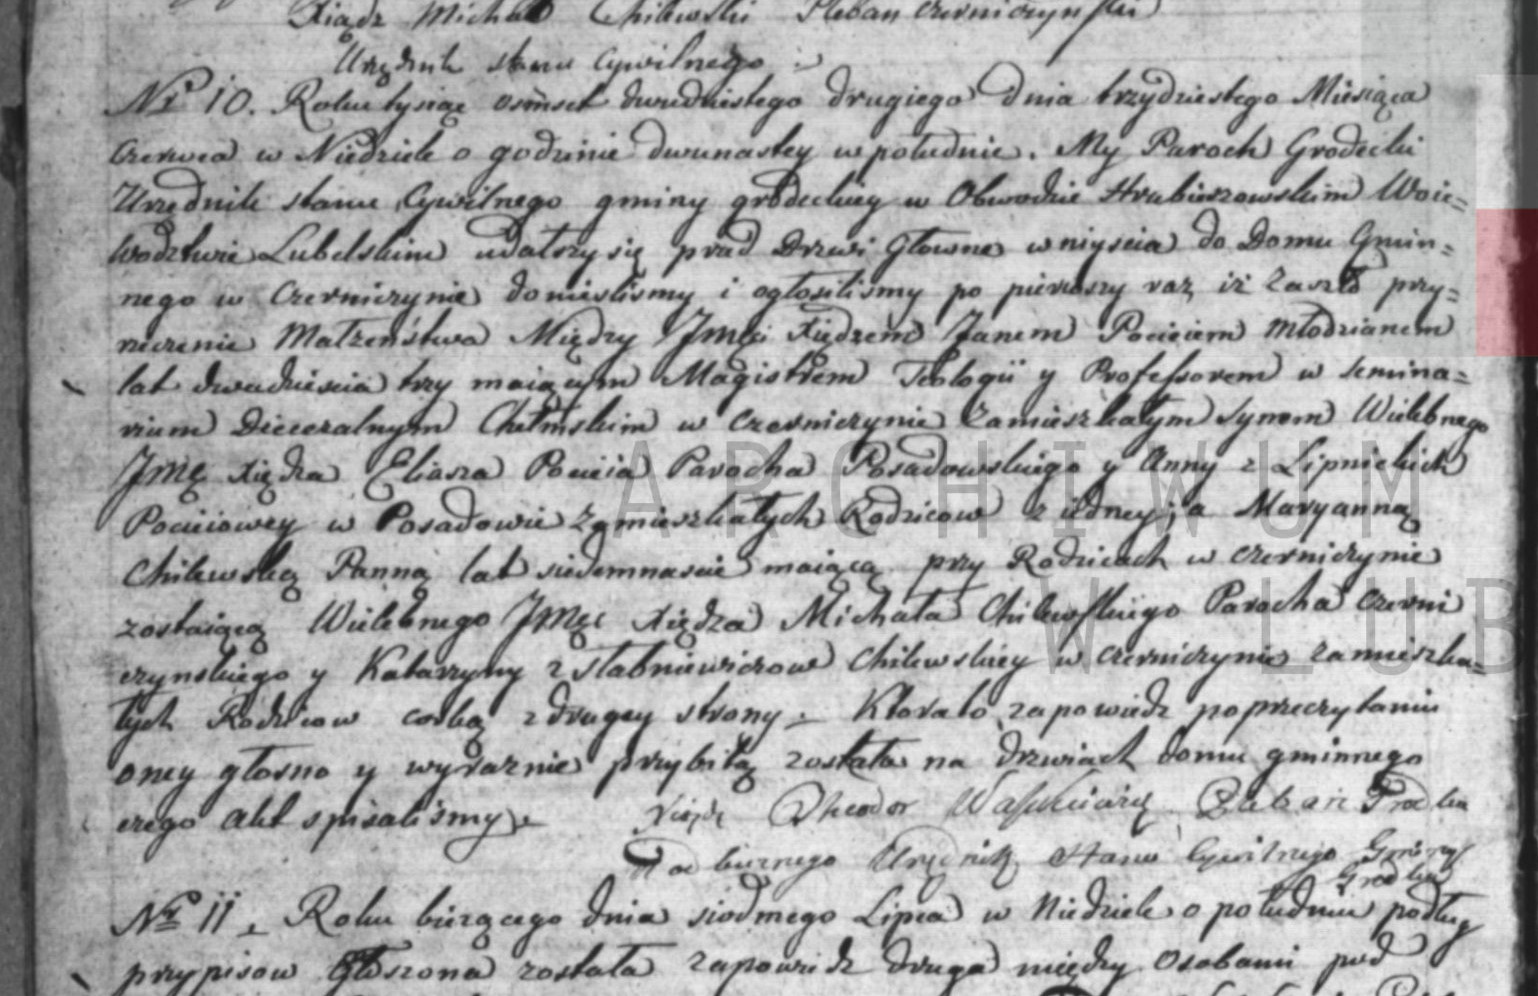 Xiądz Michał Chilewski Pleban Czerniczynski
Urzędnik stanu Cywilnego
Nr 10. Roku tysiąc osmset dwudziestego drugiego dnia trzydziestego Miesiąca
Czerwca w Niedziele o godzinie dwunastey w południe. My Paroch Grodecki
Urzędnik stanu Cywilnego gminy grodeckiey w Obwodzie Hrubieszowskim Woie=
wodztwie Lubelskim udalszy się przed Drzwi Głowne wniyscia do Domu Gmin=
nego w Czerniczynie donieslismy i ogłosilismy po pierwszy raz iż Zaszło przy=
rzeczenie Małzeństwa Między JMci Xiędzem Janem Pocieiem Młodzianem
lat dwadziescia trzy maiącym Magistrem Teologii y Professorem w semina=
rium Diecezalnym Chełmskim w Czerniczynie Zamieszkałym Synem Wielebnego
JMę Xiędza Eliasza Pocieia Parocha Posadowskiego y Anny z Lipnickich
Pocieiowey w Posadowie Zamieszkałych Rodzicow z iedney; a Maryanną
Chilewską Panną lat siedemnascie maiącą przy Rodzicach w Czerniczynie
zostaiącą Wielebnego JMci Xiędza Michała Chilewskiego Parocha Czerni
czynskiego y Katarzyny z Słabniewiczow Chilewskiey w Czerniczynie zamieszka=
łych Rodzicow corką z drugey strony. Ktorato zapowiedz po przeczytaniu
oney głosno y wyraznie przybitą została na drzwiach domu gminnego
czego Akt spisalismy.
Xiądz Theodor Pleban Grodka
Nadbuznego Urzędnik Stanu Cywilnego Gminy
Grodka
Nr 11. Roku bieżącego dnia siodmego Lipca w Niedziele o południu podług
przypisow Głoszona została zapowiedz druga między Osobami pod
ARCHIWUM
W LUB